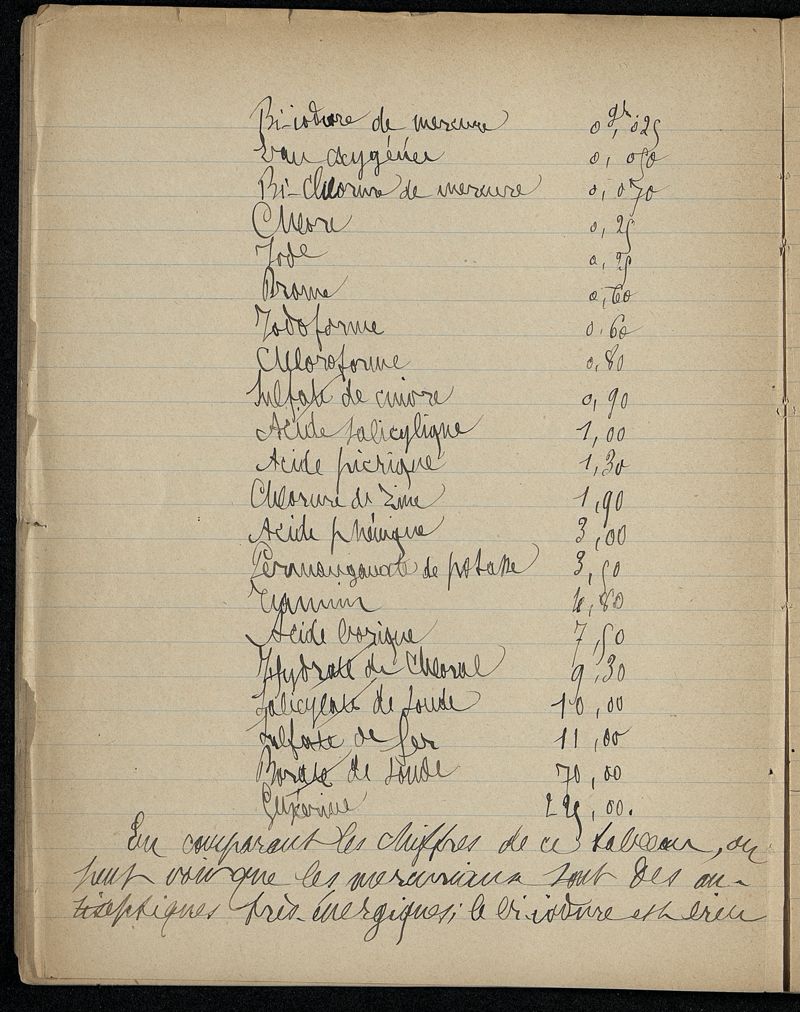 Bi-iodure de mercure 0gr,025
Eau oxygénée 0,050
Bi-Chlorure de mercure 0,070
Chlore 0,25
Iode 0,25
Brome 0,60
Iodoforme 0,60
Chloroforme 0,80
Sulfate de cuivre 0,90
Acide salicylique 1,00
Acide picrique 1,30
Chlorure de Zinc 1,90
Acide phénique 3,00
Permanganate de potasse 3,50
Tannin 4,80
Acide borique 7,50
Hydrate de Chloral 9,30
Salicylate de soude 10,00
Sulfate de fer 11,00
Borate de soude 70,00
Glycérine 225,00.
En comparant les chiffres de ce tableau, on
peut voir que les mercuriaux sont des an-
tiseptiques très-énergiques; le bi-iodure est bien